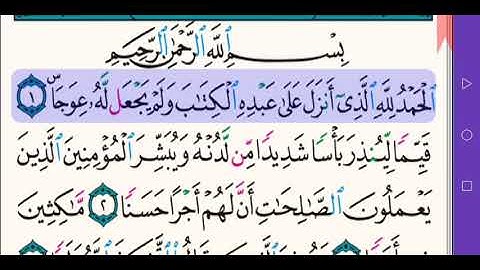 بِسْمِ اللَّهِ الرَّحْمَٰنِ الرَّحِيمِ
الْحَمْدُ لِلَّهِ الَّذِي أَنزَلَ عَلَىٰ عَبْدِهِ الْكِتَابَ وَلَمْ يَجْعَل لَّهُ عِوَجَا ۜ ١
قَيِّمًا لِّيُنذِرَ بَأْسًا شَدِيدًا مِّن لَّدُنْهُ وَيُبَشِّرَ الْمُؤْمِنِينَ الَّذِينَ
يَعْمَلُونَ الصَّالِحَاتِ أَنَّ لَهُمْ أَجْرًا حَسَنًا ٢ مَّاكِثِينَ